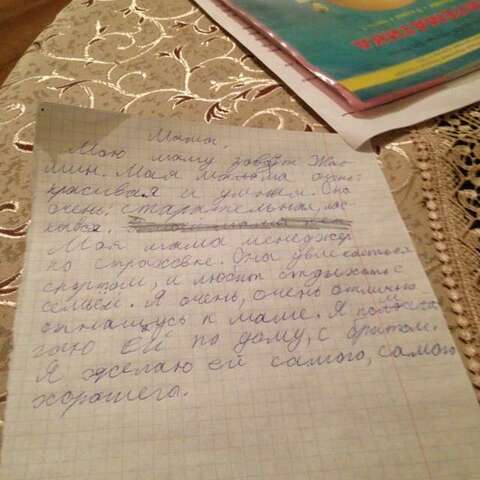 Мама.
Мою маму зовут Жас-
мин. Моя мама очень
красивая и умная. Она
очень старательная, лас-
кывая.
Моя мама менеджер
по страховке. Она увлекается
спортом, и любит отдыхать с
семьей. Я очень, очень отлично
отнашусь к маме. Я помага
гаю ей по дому, с братом.
Я желаю ей самого, самого
хорошега.